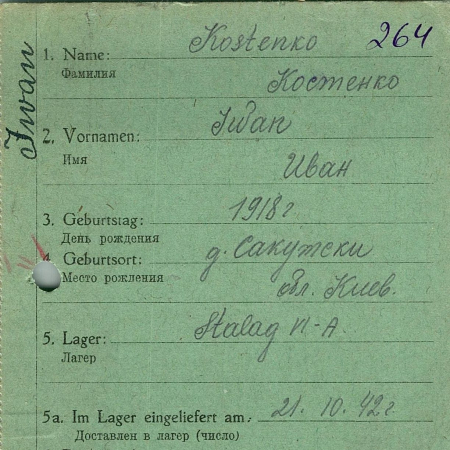 264
Iwan
1. Name: Kostenko
Фамилия Костенко
2. Vornamen: Iwan
Имя Иван
3. Geburtstag: 1918 г
День рождения
4. Geburtsort: д. Сакужски
Место рожления обл. Киев.
5. Lager: Stalag VI-A.
Лагер
5a. Im Lager eingeliefert am: 21. 10. 42 г.
Доставлен в лагер (число)